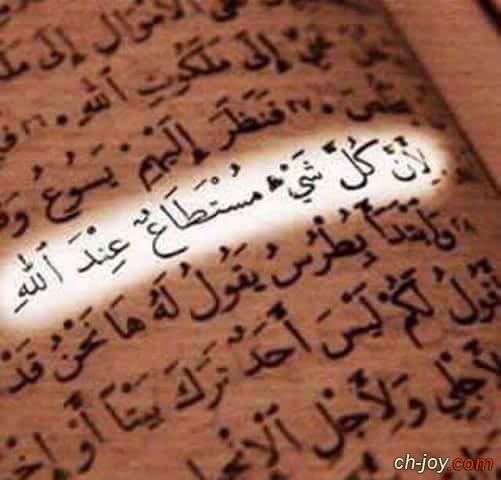 الْأَمْوَالِ إِلَى
غَنِيٌّ إِلَى مَلَكُوتِ ٱللهِ. ٢٦
٢٧ فَنَظَرَ إِلَيْهِمْ يَسُوعُ
لِأَنَّ كُلَّ شَيْءٍ مُسْتَطَاعٌ عِنْدَ ٱللهِ
٢٨ وَٱبْتَدَأَ بُطْرُسُ يَقُولُ لَهُ هَا نَحْنُ قَدْ
أَقُولُ لَكُمْ لَيْسَ أَحَدٌ تَرَكَ بَيْتًا أَوْ
لِأَجْلِي وَلِأَجْلِ
ch-joy.com